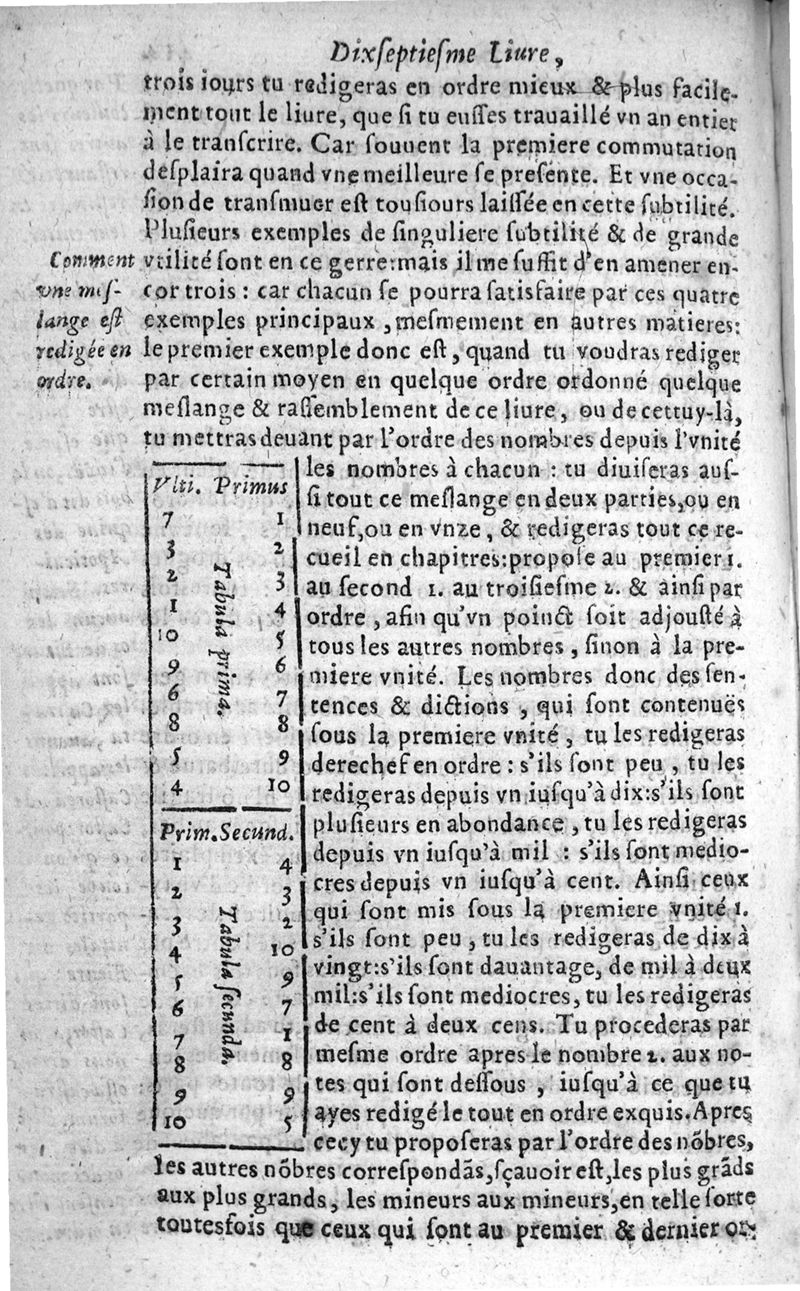 Dixſeptieſme Liure,
trois iours tu redigeras en ordre mieux & plus facile-
ment tout le liure, que ſi tu euſſes trauaillé vn an entier
à le tranſcrire. Car ſouuent la premiere commutation
deſplaira quand vne meilleure ſe preſente. Et vne occa-
ſion de tranſmuer eſt touſiours laiſſée en cette ſubtilité.
Pluſieurs exemples de ſinguliere ſubtilité & de grande
vtilité ſont en ce gerre: mais il me ſuffit d'en amener en-
cor trois : car chacun ſe pourra ſatisfaire par ces quatre
exemples principaux, meſmement en autres matieres:
le premier exemple donc eſt, quand tu voudras rediger
par certain moyen en quelque ordre ordonné quelque
meſlange & raſſemblement de ce liure, ou de cettuy-là,
tu mettras deuant par l'ordre des nombres depuis l'vnité
Comment
vne meſ-
lange eſt
redigée en
ordre.
les nombres à chacun : tu diuiſeras auſ-
ſi tout ce meſlange en deux parties, ou en
neuf, ou en vnze, & redigeras tout ce re-
cueil en chapitres: propoſe au premier 1.
au ſecond 1. au troiſieſme 2. & ainſi par
ordre, afin qu'vn poinct ſoit adjouſté à
tous les autres nombres, ſinon à la pre-
miere vnité. Les nombres donc des ſen-
tences & dictions, qui ſont contenuës
ſous la premiere vnité, tu les redigeras
derechef en ordre : s'ils ſont peu, tu les
redigeras depuis vn iuſqu'à dix: s'ils ſont
pluſieurs en abondance, tu les redigeras
depuis vn iuſqu'à mil : s'ils ſont medio-
cres depuis vn iuſqu'à cent. Ainſi ceux
qui ſont mis ſous la premiere vnité 1.
s'ils ſont peu, tu les redigeras de dix à
vingt: s'ils ſont dauantage, de mil à deux
mil: s'ils ſont mediocres, tu les redigeras
de cent à deux cens. Tu procederas par
meſme ordre apres le nombre 2. aux no-
tes qui ſont deſſous, iuſqu'à ce que tu
ayes redigé le tout en ordre exquis. Apres
cecy tu propoſeras par l'ordre des nõbres,
Vlti. Primus
7 1
3 2
2 3
1 4
10 5
9 6
6 7
8 8
5 9
4 10
Tabula prima.
Prim. Secund.
1 4
2 3
3 2
4 10
5 9
6 7
7 1
8 8
9 9
10 5
Tabula ſecunda.
les autres nõbres correſpondãs, ſçauoir eſt, les plus grãds
aux plus grands, les mineurs aux mineurs, en telle ſorte
toutesfois que ceux qui ſont au premier & dernier or-